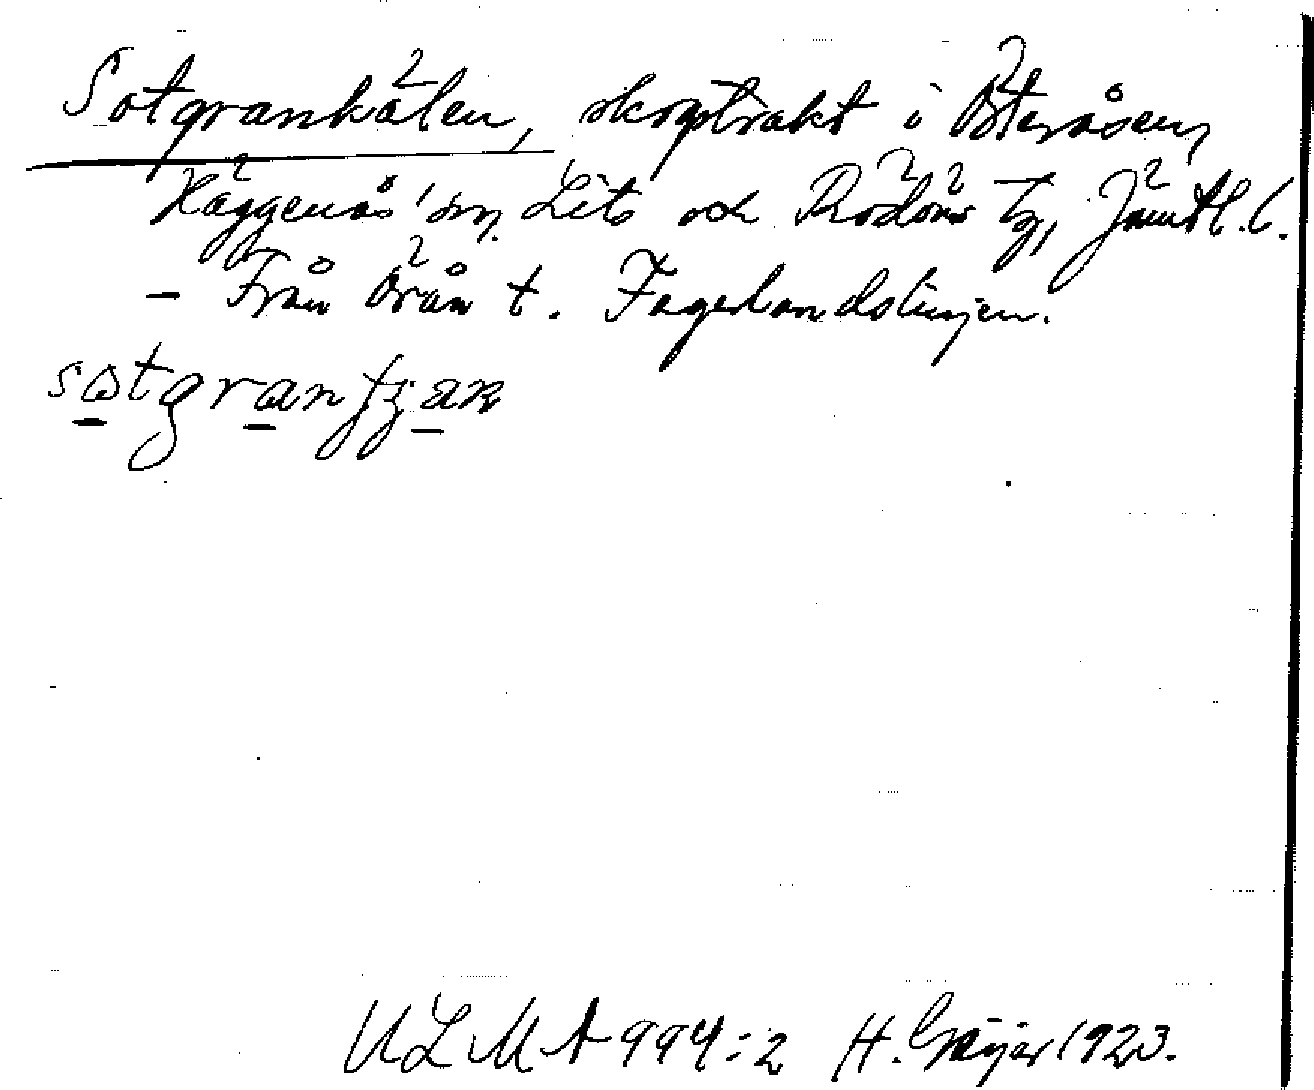 Sotgrankälen, skogstrakt i Österåsen,
Häggenås' sn, Lits och Rödöns tg, Jämtl. l.
– Från Örån t. Fagerlandslinjen.
sotgran
ULMA 994:2 H. Geijer 1923.